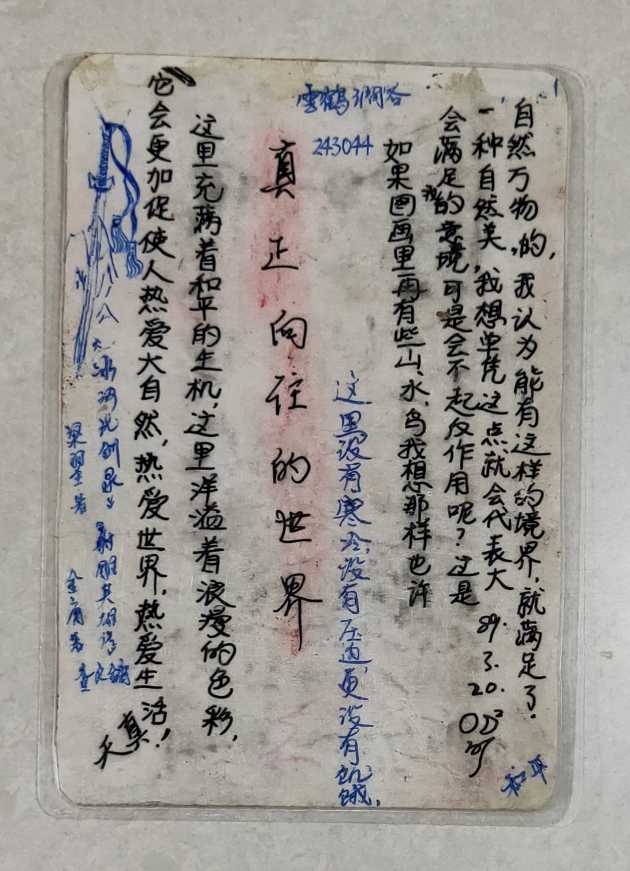 雲鶴潤谷
243044
真正向往的世界
这里没有寒冷,没有压迫更没有饥饿,
这里充满着和平的生机,这里洋溢着浪漫的色彩,
它会更加促使人热爱大自然,热爱世界,热爱生活!
天真
如果图画里再有些山、水、鸟我想那样也许
会满足我的意境可是会不起反作用呢?这是
一种自然美,我想单凭这点就会代表大
自然万物的,我认为能有这样的境界,就满足了.
89.3.20.
和平
冰河洗剑录
梁羽生著
射雕英雄传
金庸著